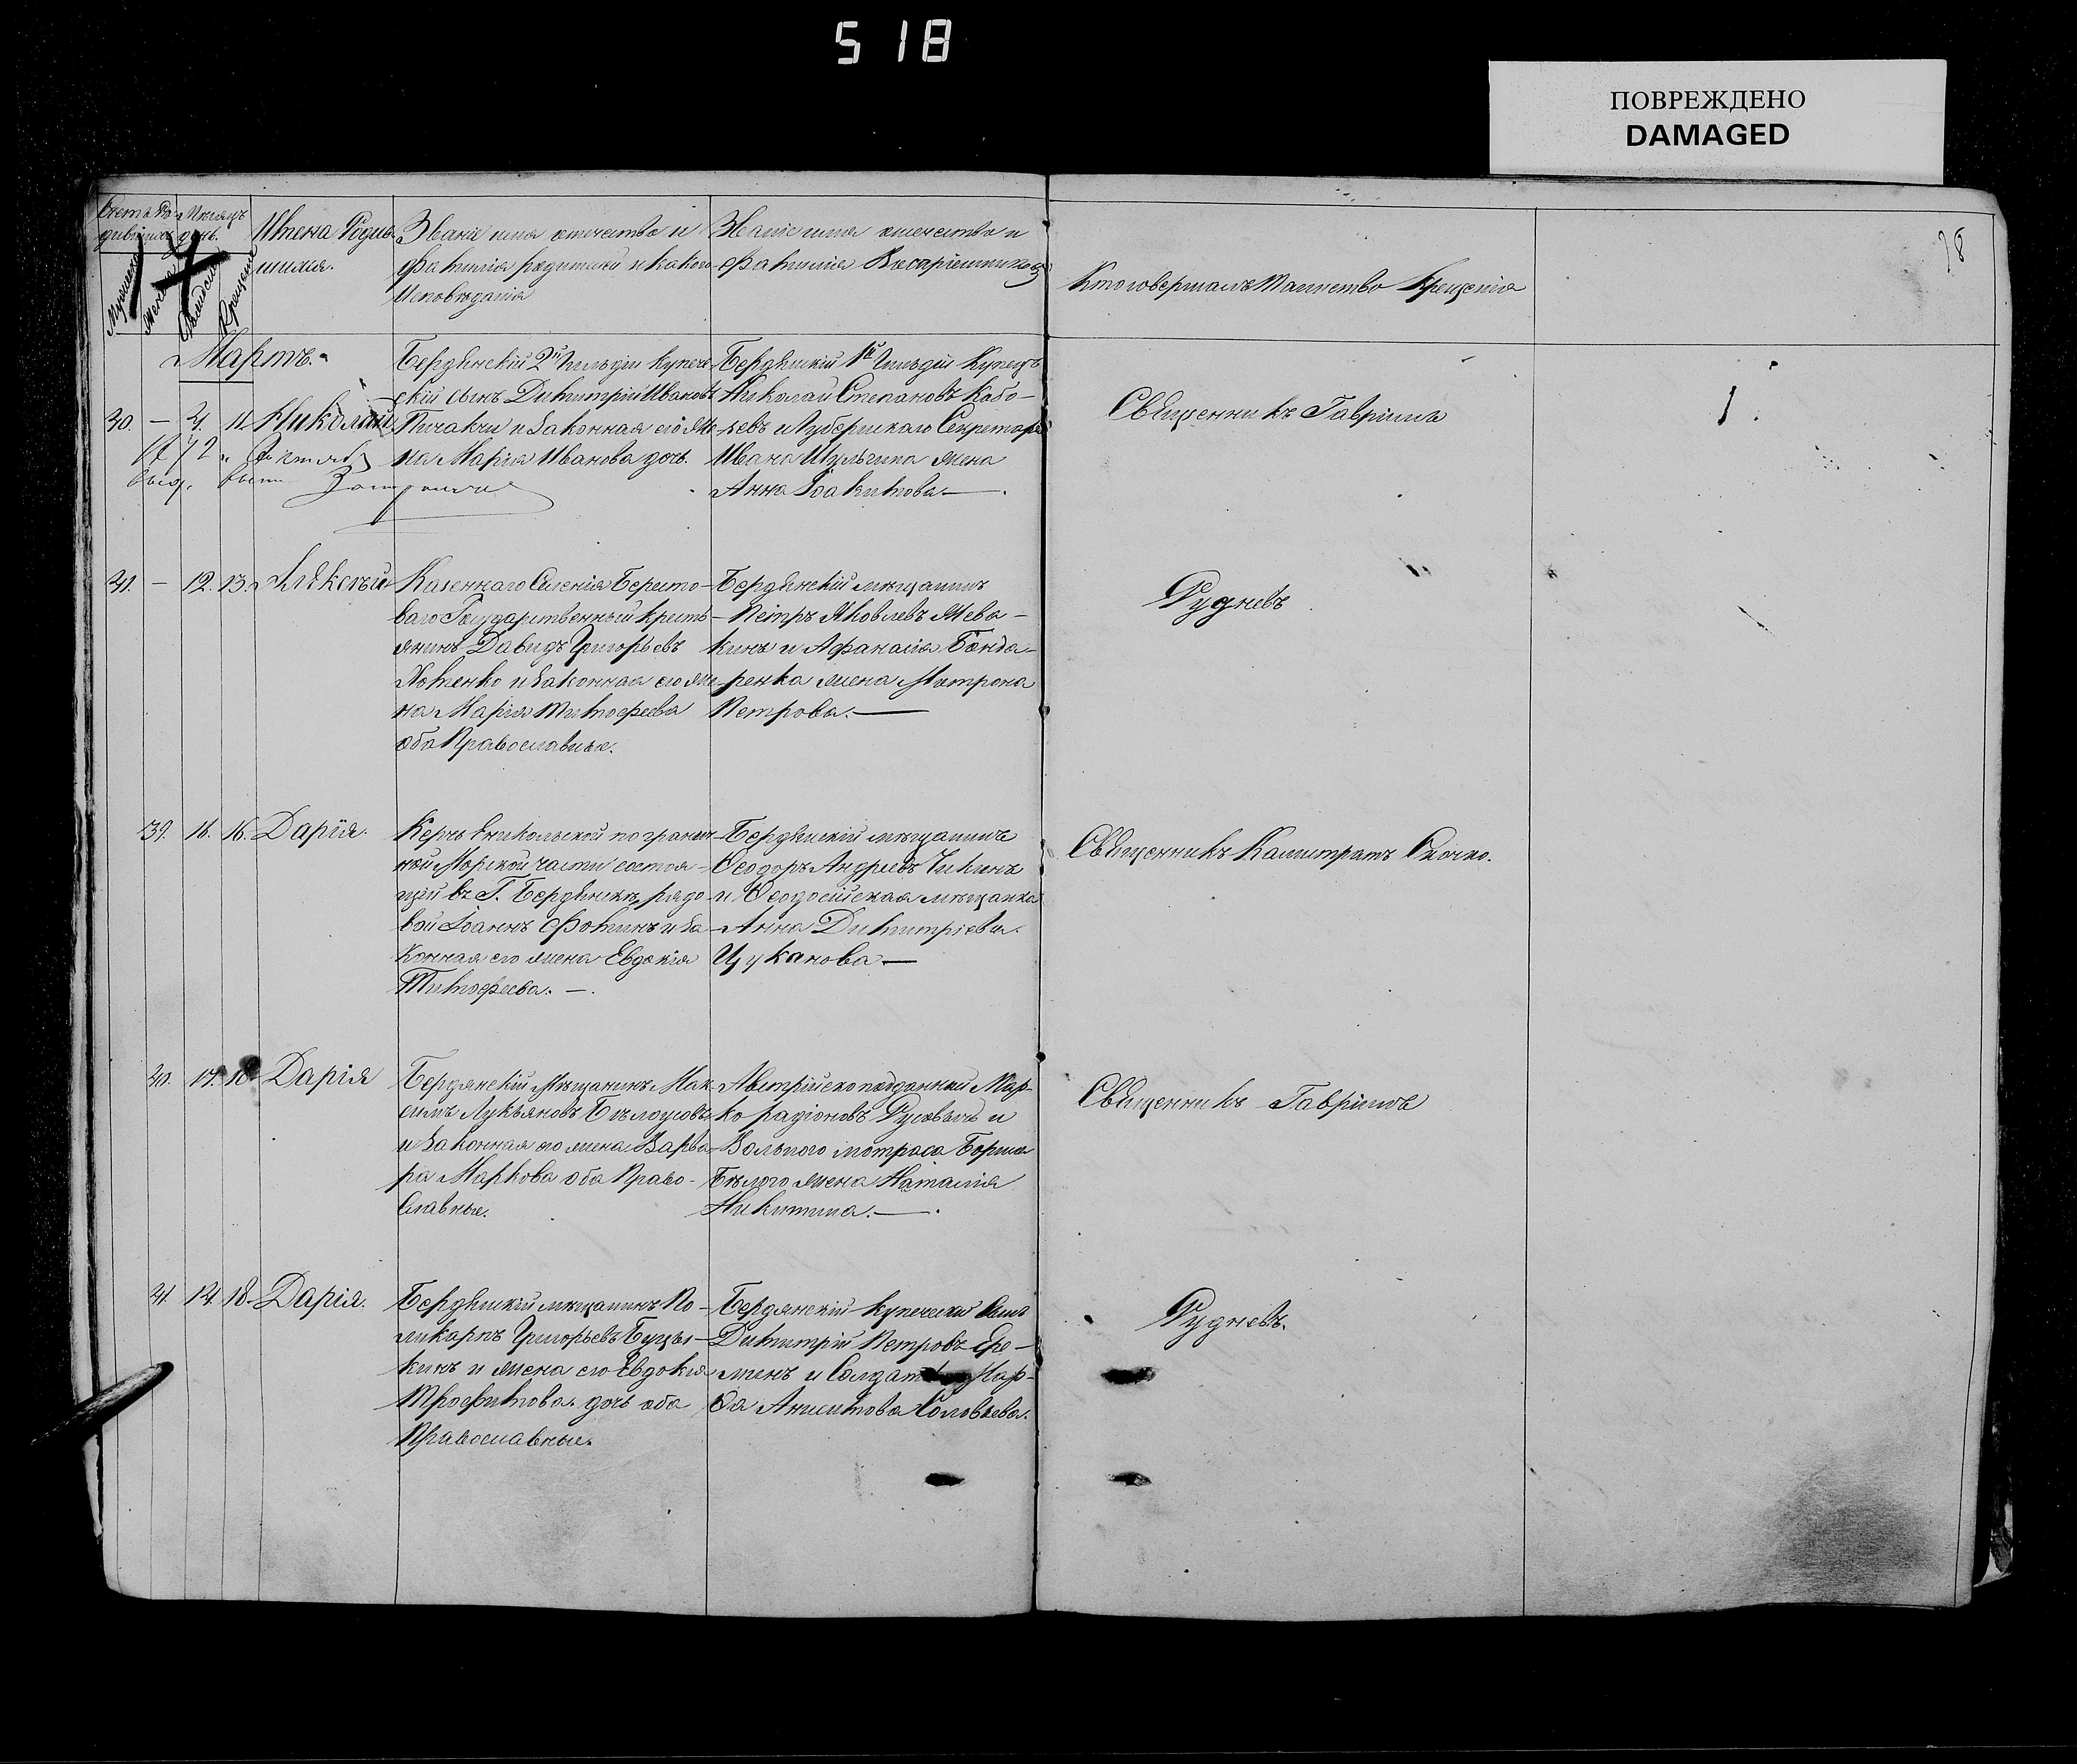 518
ПОВРЕЖДЕНО
DAMAGED
Счетъ Ро
дившихся
Мѣсяцъ
день.
Мужеска
Женска
Рожденія
Крещенія
Имена Родив
шихся.
Званіе имя отечество и
фамилія родителей и какого
Исповѣданія
Званіе имя отечество и
Фамилія Воспріемниковъ
Кто совершалъ Таинство Крещенія
Мартъ.
Бердянскій 2й Гильдіи купече
скій сынъ Димитрій Ивановъ
Пичахчи и законная его же
на Марія Иванова дочь.
Бердянскій 1й Гильдіи Купецъ
Николай Степановъ Кобо-
зевъ и Губернскаго Секретаря
Ивана Шульгина жена
Анна Іоакимова
Священникъ Гавріилъ
1.
11 Николай
1872
Октяб
выд.
Алексѣй
12. 13.
Казеннаго Селенія Бересто-
ваго Государственный кресть-
янинъ Давидъ Григорьевъ
Хоменко и законная его же
на Марія Тимофеева
оба Православные.
Бердянскій мѣщанинъ
Петръ Яковлевъ Жева-
кинъ и Афанасія Бонда-
ренка жена Матрона
Петрова.
Рудневъ
39. 16. 16. Дарія.
Керчь Еникольской погранич
ной Морской части состоя-
щій въ Г. Бердянскѣ рядо
вой Іоаннъ Фоминъ и за
конная его жена Евдокія
Тимофеева.
Бердянскій мѣщанинъ
Ѳеодоръ Андреевъ Чикинъ
и Ѳеодосійская мѣщанка
Анна Димитріева
Цуканова
Священникъ Калистратъ Сночко.
40. 17. 18 Дарія
Бердянскій Мѣщанинъ Мак
симъ Лукьяновъ Бѣлоусовъ
и законная его жена Варва
ра Маркова оба Право-
славные.
Австрійско подданный Мар-
ко Радіоновъ и
Вольнаго матроса Бориса
Бѣлого жена Наталія
Никитина.
Священникъ Гавріилъ
41 18. Дарія.
Бердянскій мѣщанинъ По-
ликарпъ Григорьевъ Буцы-
кинъ и жена его Евдокія
Трофимова дочь оба
Православные.
Бердянскій купеческій Сынъ
Димитрій Петровъ Ере-
минъ и Мар-
ѳа Анисимова Соловьева.
Рудневъ.